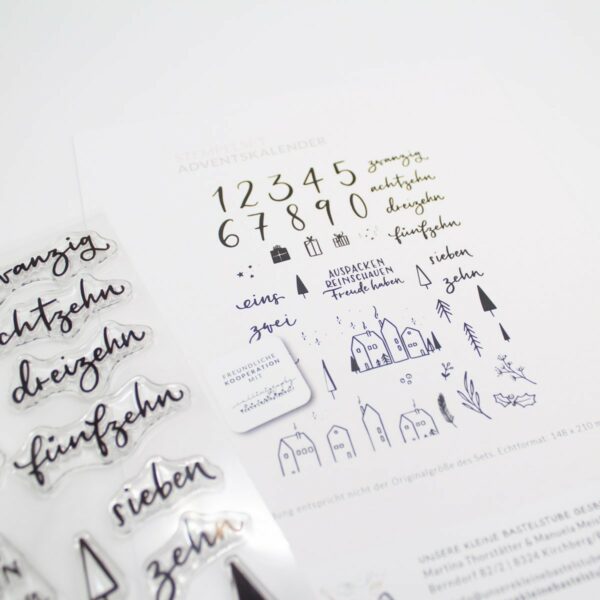 STEMPELSET
ADVENTSKALENDER
1 2 3 4 5
6 7 8 9 0
zwanzig
achtzehn
dreizehn
fünfzehn
sieben
zehn
eins
zwei
AUSPACKEN
REINSCHAUEN
Freude haben
FREUNDLICHE
KOOPERATION
MIT
wanzig
chtzehn
dreizehn
fünfzehn
sieben
zehn
ung entspricht nicht der Originalgröße des Sets. Echtformat: 148 x 210 m
UNSERE KLEINE BASTELSTUBE GESBR
Martina Thorstätter & Manuela Meis
Berndorf 82/2 | 8324 Kirchberg/
info@unserekleinebastelstube
unserekleinebastelstub